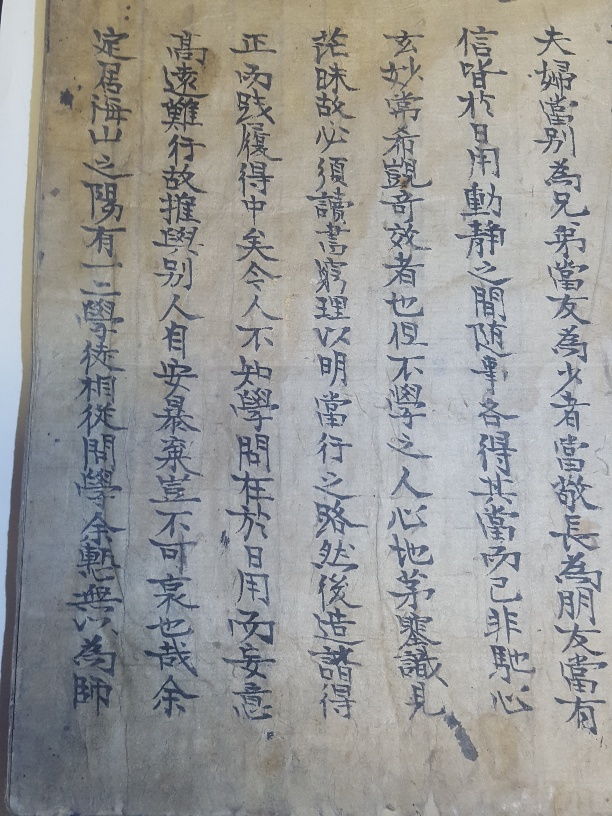 夫婦當別為兄弟當友為少者當敬長為朋友當有
信皆於日用動靜之間随事各得其當而已非馳心
玄妙常希覬奇效者也但不學之人心地茅塞識見
茫昧故必須讀書窮理以明當行之路然後造詣得
正而践履得中矣今人不知學問在於日用而妄意
高遠難行故推與別人自安暴棄豈不可哀也哉余
定居海山之陽有一二學徒相從問學余慙無以為師